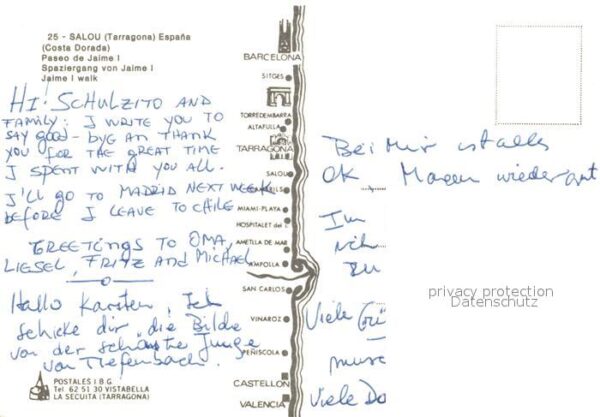 25 - SALOU (Tarragona) España
(Costa Dorada)
Paseo de Jaime I
Spaziergang von Jaime I
Jaime I walk
HI! SCHULZITO AND
FAMILY: I WRITE YOU TO
SAY GOOD-BYE AN THANK
YOU FOR THE GREAT TIME
I SPENT WITH YOU ALL.
I'LL GO TO MADRID NEXT WEEK
BEFORE I LEAVE TO CHILE
GREETINGS TO OMA,
LIESEL, FRITZ AND MICHAEL
Hallo Karsten, Ich
schicke dir die Bilde
von der schönste Junge
von Tiefenbach.
POSTALES I B G.
Tel 62 51 30 VISTABELLA
LA SECUITA (TARRAGONA)
BARCELONA
SITGES
TORREDEMBARRA
ALTAFULLA
TARRAGONA
SALOU
MIAMI-PLAYA
HOSPITALET del I.
AMETLLA DE MAR
AMPOLLA
SAN CARLOS
VINAROZ
PEÑISCOLA
CASTELLON
VALENCIA
Bei Mir ist alles
OK Magen wieder gut
Im
zu
Viele Grü
Viele Do
privacy protection
Datenschutz